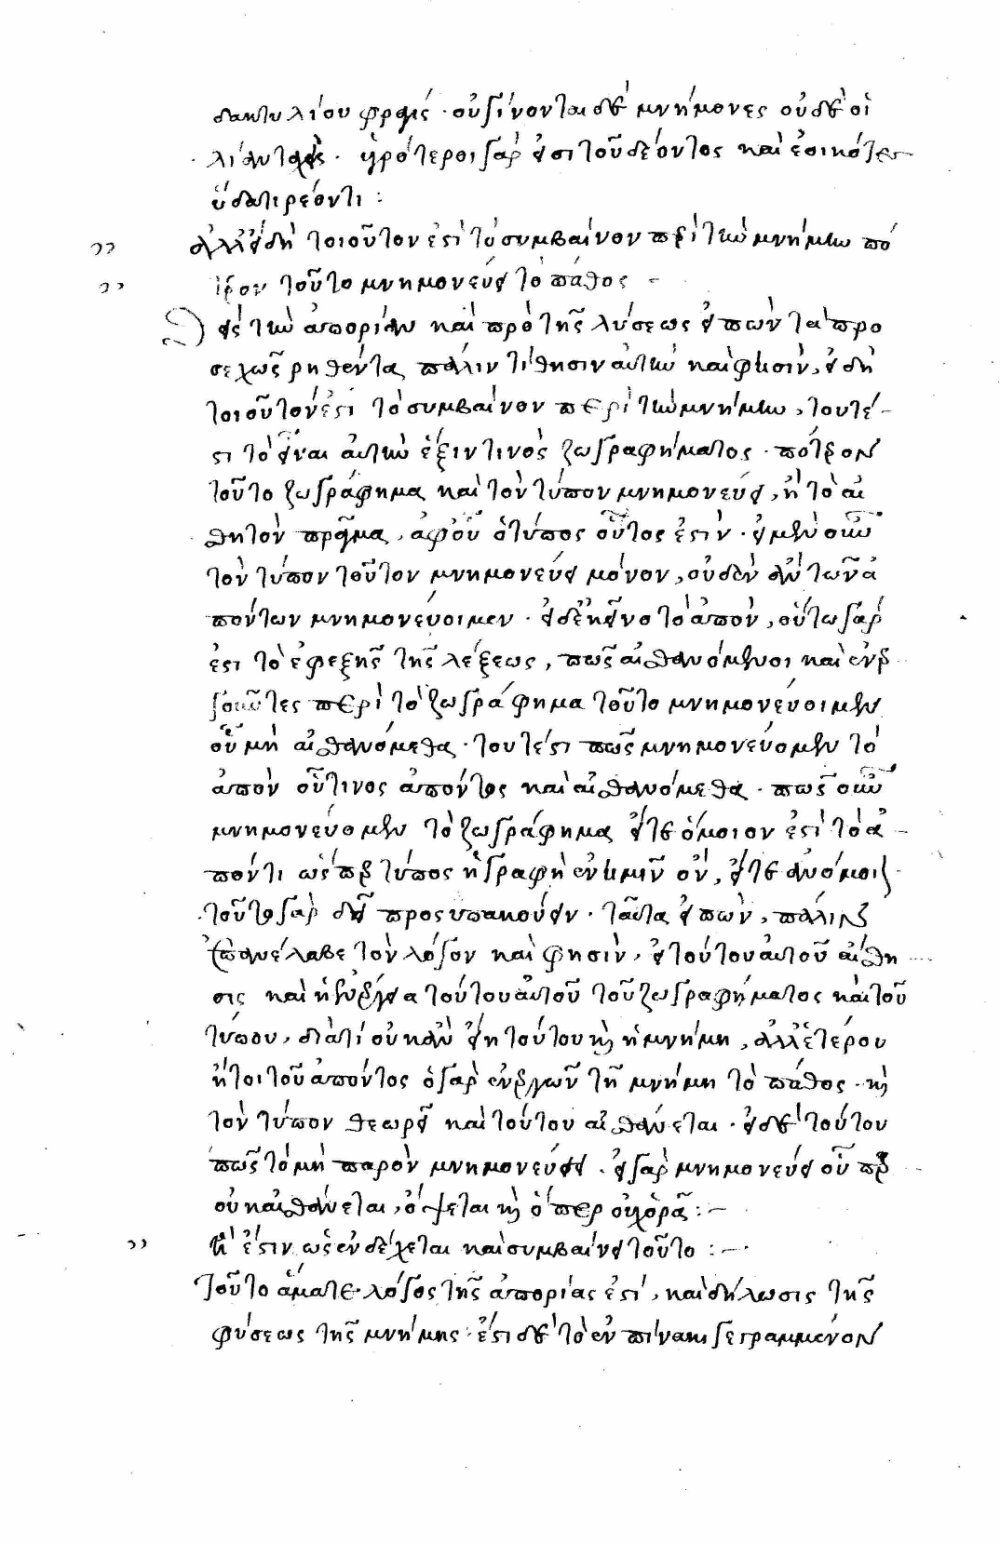 δακτυλίου σφραγίς · οὐ γίνονται δὲ μνήμονες οὐδὲ οἱ
λίαν ταχεῖς · ὑγρότεροι γάρ εἰσι τοῦ δέοντος καὶ ἐοικότες
ὕδατι ρέοντι :
ἀλλ' εἰ δὴ τοιοῦτον ἐστὶ τὸ συμβαῖνον περὶ τὴν μνήμην πό
τερον τοῦτο μνημονεύει τὸ πάθος
εἰς τὴν ἀπορίαν καὶ πρὸ τῆς λύσεως εἰπὼν τὰ προ
σεχῶς ρηθέντα, πάλιν τίθησιν αὐτὴν καὶ φησὶν, εἰ δὴ
τοιοῦτον ἐστὶ τὸ συμβαῖνον περὶ τὴν μνήμην, τουτέ
στι τὸ εἶναι αὐτὴν ἕξιν τινὸς ζωγραφήματος · πότερον
τοῦτο ζωγράφημα καὶ τὸν τύπον μνημονεύει, ἢ τὸ αἰ
σθητὸν πρᾶγμα, ἀφ' οὗ ὁ τύπος οὗτος ἐστίν · εἰ μὲν οὖν
τὸν τύπον τοῦτον μνημονεύει μόνον, οὐδὲν ἂν τῶν ἀ
πόντων μνημονεύοιμεν · εἰ δὲ ἐκεῖνο τὸ ἀπὸν, οὕτω γάρ
ἐστι τὸ ἐφεξῆς τῆς λέξεως, πῶς αἰσθανόμενοι καὶ ἐνερ
γοῦντες περὶ τὸ ζωγράφημα τοῦτο μνημονεύοιμεν
οὗ μὴ αἰσθανόμεθα · τουτέστι πῶς μνημονεύομεν τὸ
ἀπὸν οὗτινος ἀπόντος καὶ αἰσθανόμεθα · πῶς οὖν
μνημονεύομεν τὸ ζωγράφημα εἴτε ὅμοιον ἐστὶ τὸ ἀ
πόντι ὥσπερ τύπος ἢ γραφὴ ἐν ἡμῖν ὂν, εἴτε ἀνόμοιον
τοῦτο γὰρ δεῖ προσυπακούειν · ταῦτα εἰπὼν, πάλιν
ἐπανέλαβε τὸν λόγον καὶ φησὶν, εἰ τούτου αὐτοῦ αἴσθη
σις καὶ ἡ ἐνέργεια τούτου αὐτοῦ τοῦ ζωγραφήματος καὶ τοῦ
τύπου, διατί οὐκ ἂν εἴη τούτου καὶ ἡ μνήμη, ἀλλ' ἑτέρου
ἤτοι τοῦ ἀπόντος ὁ γὰρ ἐνεργῶν τῇ μνήμῃ τὸ πάθος καὶ
τὸν τύπον θεωρεῖ καὶ τούτου αἰσθάνεται · εἰ δὲ τούτου
πῶς τὸ μὴ παρὸν μνημονεύσει · εἰ γὰρ μνημονεύει οὗπερ
οὐκ αἰσθάνεται, ὄψεται καὶ ὅπερ οὐχ ὁρᾷ :
ἢ ἔστιν ὡς ἐνδέχεται καὶ συμβαίνει τοῦτο :
τοῦτο ἅμα τε λόγος τῆς ἀπορίας ἐστί, καὶ δήλωσις τῆς
φύσεως τῆς μνήμης · ἔστι δὲ τὸ ἐν πίνακι γεγραμμένον